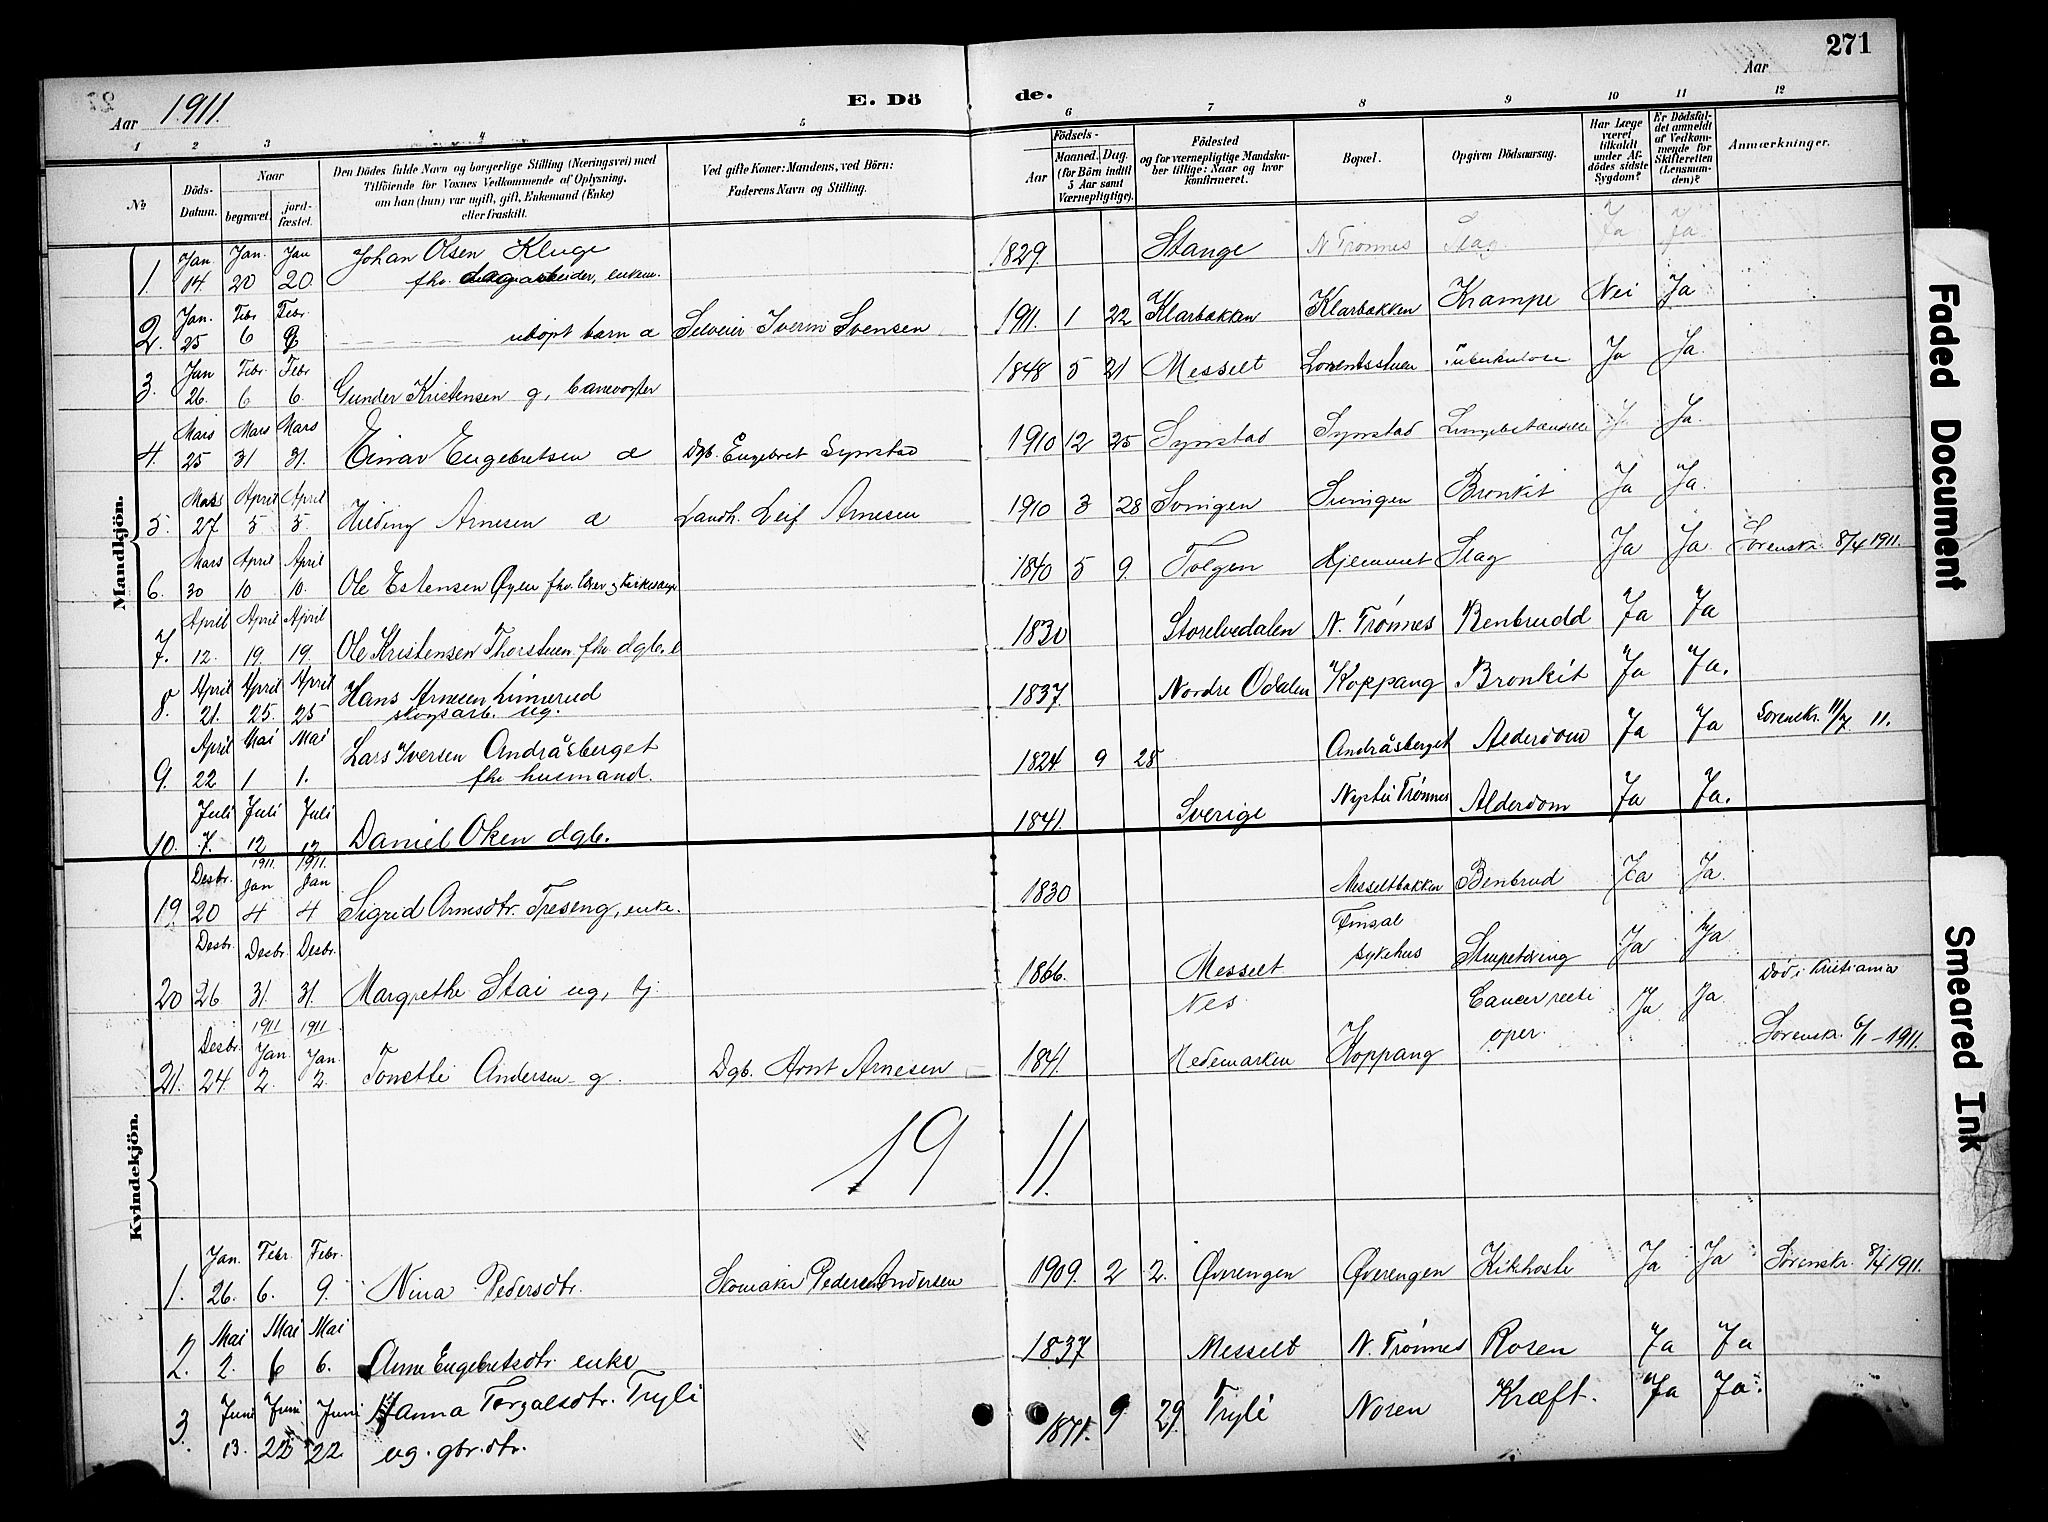 271
Aar 1911.
E. Döde.
Aar
1 2 3 4 5 6 7 8 9 10 11 12
№
Döds-Datum.
Naar
begravet.
jord-fæstet.
Den Dödes fulde Navn og borgerlige Stilling (Næringsvei) med
Tilföiende for Voxnes Vedkommende af Oplysning,
om han (hun) var ugift, gift, Enkemand (Enke)
eller fraskilt.
Ved gifte Koner: Mandens, ved Börn:
Faderens Navn og Stilling.
Födsels-
Aar
Maaned. Dag.
(for Börn indtil
5 Aar samt
Værnepligtige).
Födested
og for værnepligtige Mandska-
ber tillige: Naar og hvor
konfirmeret.
Bopæl.
Opgiven Dödsaarsag.
Har Læge
været
tilkaldt
under Af-
dödes sidste
Sygdom?
Er Dödsfal-
det anmeldt
af Vedkom-
mende for
Skifteretten
(Lensman-
den)?
Anmærkninger.
Mandkjön.
1. Jan. 14 Jan. 20 Jan 20 Johan Olsen Kluge fhv. dagarbeider, enkem. 1829. Stange N. Trønnes Slag Ja Ja
2. Jan. 25 Febr 6 Febr. udøpt barn d Iverin Svensen 1911. 1 22 Klarbakken Klarbakken Krampe Nei Ja
3. Jan 26. Febr. 6 Febr 6. Gunder Kristensen g, banevogter 1848 5 21 Messelt Lorentsstuen Tuberkulose Ja Ja.
4. Mars 25 Mars 31 Mars 31. Einar Engebretsen d Dgb. Engebret Synstad 1910 12 25 Synstad Synstad Ja Ja.
5. Mars 27. April 5 April 5. Hilding Arnesen d Landh. Leif Arnesen 1910 3 28 Bronkit Ja Ja.
6. Mars 30 April 10 April 10. Ole Estensen Øyen fhv. lærer og kirkesanger 1840 5 9. Tolgen Hjemmet Slag Ja Ja Sorenskr. 8/4 1911.
7. April 12. April 19. April 19. Ole Kristensen Thorstuen fhv. dgb. e 1830 Storelvedalen N. Trønnes Benbrudd Ja Ja
8. April 21. April 25. April 25 Hans Arnesen Linnerud skogsarb. ug. 1837 Nordre Odalen Koppang Bronkit Ja Ja.
9. April 22 Mai 1 Mai 1. Lars Iversen Andråsberget fhv husmand. 1824 9 28 Andråsberget Alderdom Ja Ja Sorenskr. 11/7 11.
10. Juli 7. Juli 12 Juli 12 Daniel Oken dgb. 1841. Sverige Trønnes Alderdom Ja Ja.
Kvindekjön.
19. Desbr. 20 1911. Jan 4 1911. Jan 4 Sigrid Arnesdtr. Treseng, enke. 1830 Messeltbakken Benbrud Ja Ja.
20 Desbr. 26 Desbr. 31. Desbr. 31. Margrethe Stai ug, tj 1866. Messelt Finsal sykehus Ja Ja
21. Desbr. 24 1911 Jan. 2. 1911 Jan. 2. Tonette Andersen g. Dgb. Arnt Arnesen 1841. Nes Hedemarken Koppang Cancer recti oper. Ja Ja Død i Kristiania Sorenskr. 6/1 – 1911.
1911.
1. Jan. 26. Febr. 6. Febr. 9. Nina Pedersdtr. Skomaker Peder Andersen 1909. 2 2. Øverengen Øverengen Kikhoste Ja Ja Sorenskr. 8/4 1911.
2. Mai 2. Mai 6 Mai 6. Anne Engebretsdtr. enke 1837 Messelt N. Trønnes Rosen Ja Ja
3. Juni 13. Juni 22 Juni 22. Hanna Torgalsdtr. Tryli ug. gbr.dtr. 1871. 9. 29. Tryli Noren Kræft. Ja Ja.
Faded Document
Smeared Ink